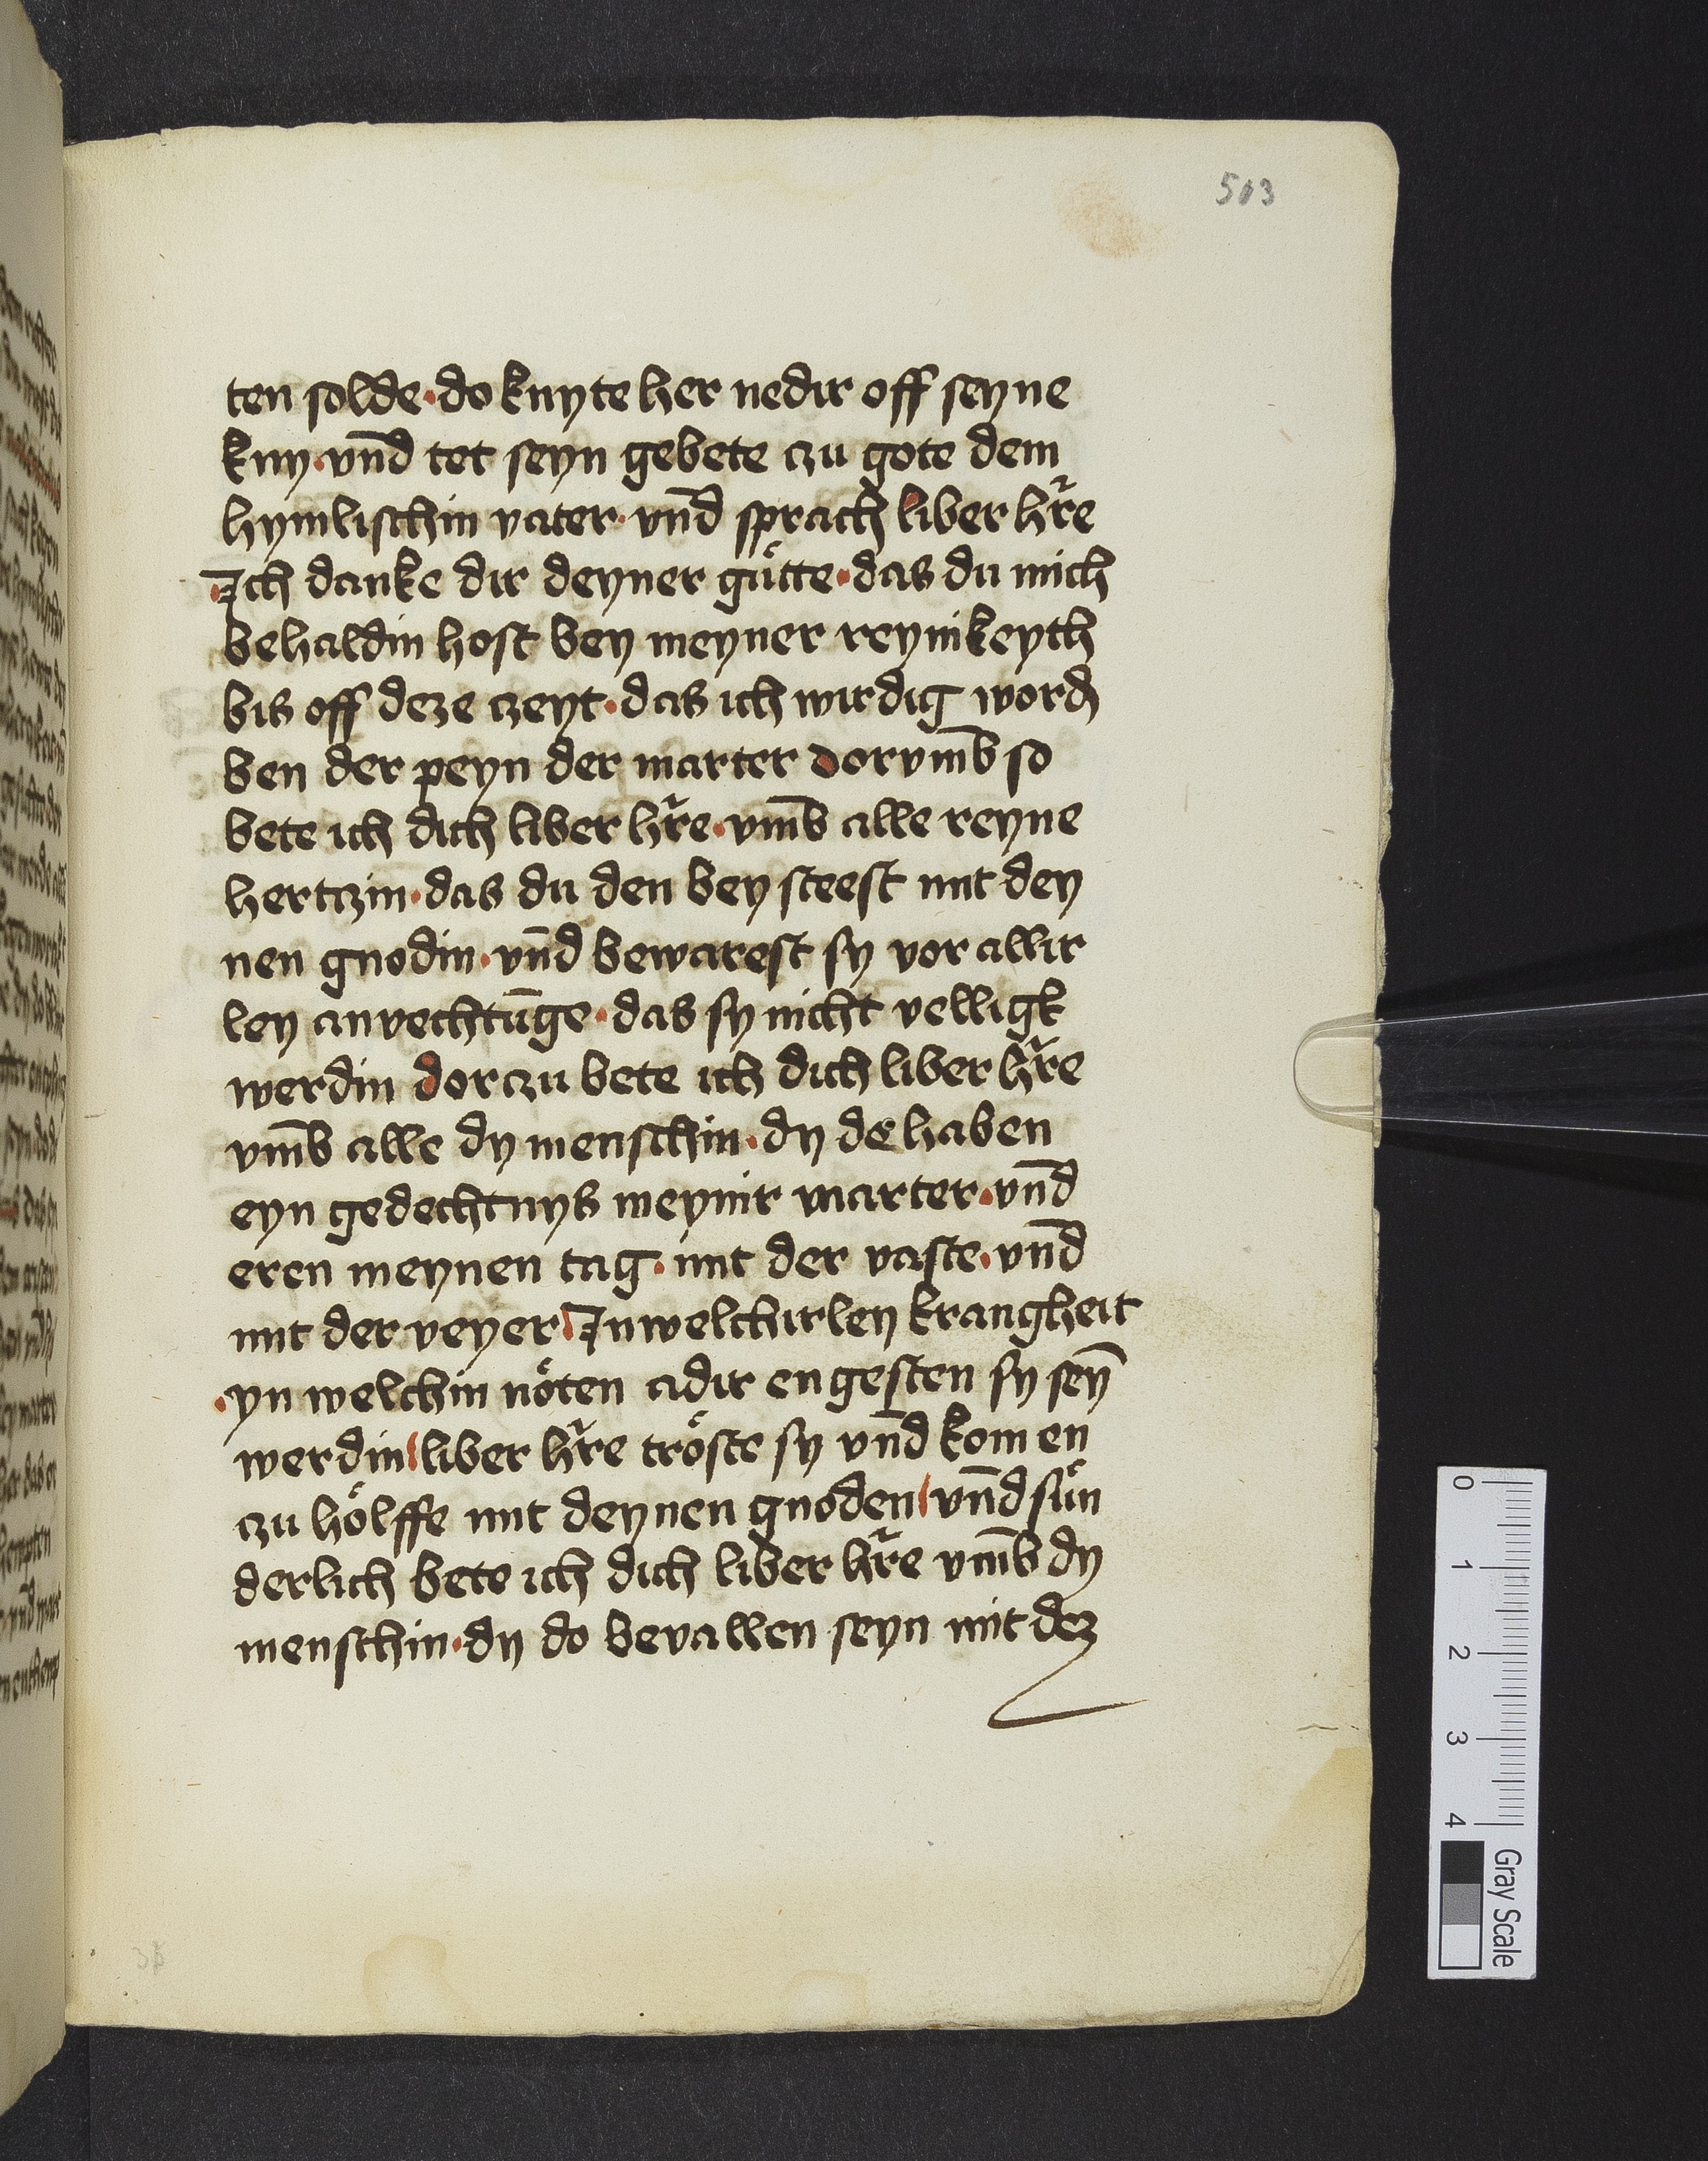 503
ten solde · do knyte her nedir off seyne
kny · vnd̄ tet seyn gebete czu gote dem
hymlischin vater · vnd̄ sprach liber hr̄e
Ich danke dir deyner gu̇tte · das du mich
behaldin host bey meyner reynikeyth
bis off deze czeyt · das ich wirdig word
ben der peyn der marter dorvmb̄ so
bete ich dich liber hr̄e · vmb̄ alle reyne
hertczin · das du den bey steest mit dey
nen gnodin · vnd̄ bewarest sy vor allir
ley anvechtūge · das sy nicht velligk
werdin dorczu bete ich dich liber hr̄e
vmb̄ alle dy menschin · dy de haben
eyn gedechtnys meynir marter · vnd̄
eren meynen tag · mit der vaste · vnd̄
mit der veyer In welchirley krangheit
· yn welchin nȯten adir engesten sy seȳ
werdin liber hr̄e trȯste sy vnd̄ kom en
czu hȯlffe mit deynen gnoden vnd̄ su̇n
derlich bete ich dich liber hr̄e vmb̄ dy
menschin · dy do bevallen seyn mit dez
0
1
2
3
4
Gray Scale